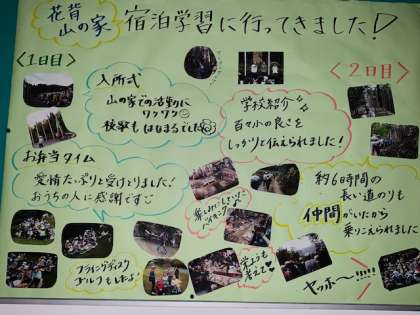 花背
山の家
宿泊学習に行ってきました!
<1日目>
入所式
山の家での活動に
ワクワク
校歌もはなまるでした
お弁当タイム
愛情たっぷりと受けとりました!
おうちの人に感謝です
フライングディスク
ゴルフもしたよ!
<2日目>
学校紹介
百々小の良さを
しっかりと伝えられました!
約6時間の
長い道のりも
仲間がいたから
乗りこえられました
ヤッホ〜!!!!